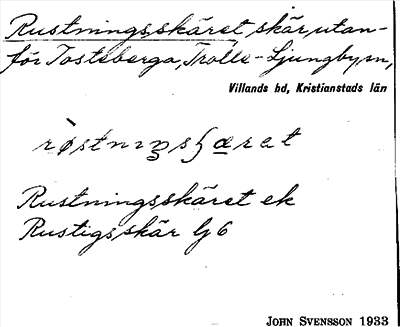 Rustningsskäret skär utan-
för Tosteberga, Trolle-Ljungby sn,
Villands hd, Kristianstads län
Rustningsskäret ek
Rustigsskär
JOHN SVENSSON 1933